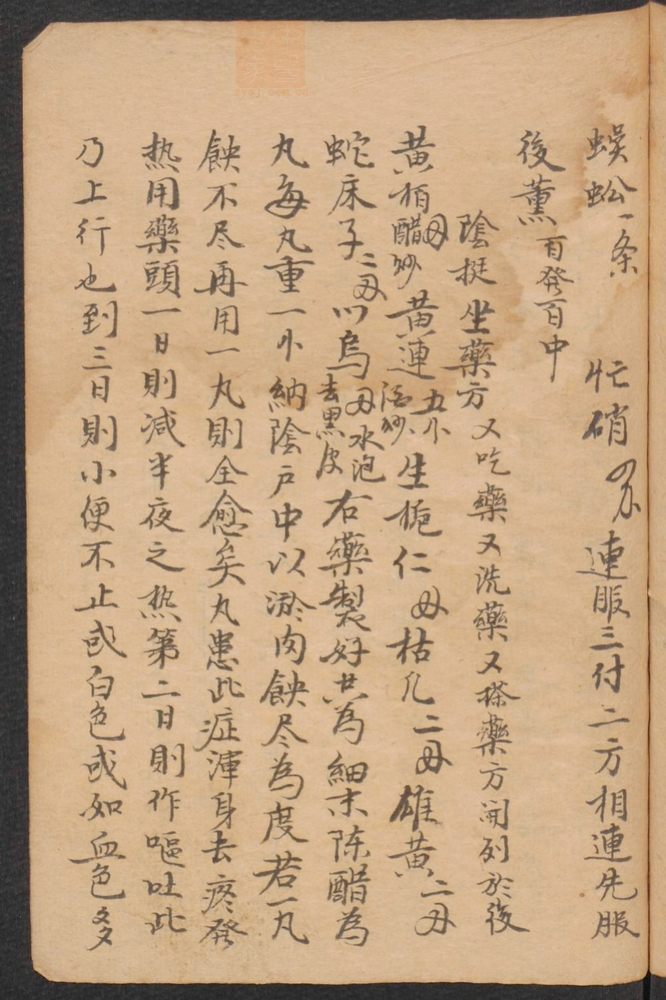 蜈蚣一条 忙硝 連服三付二方相連先服
後薰 百發百中
陰挺坐藥方 又吃藥又洗藥又搽藥方開列於後
黄栢醋炒 黄連五小酒炒 生梔仁 枯凡二 雄黄二
蛇床子二 川烏水泡去黑皮 右藥製好共為細末陈醋為
丸每丸重一小納陰户中以淤肉蝕尽為度若一丸
蝕不尽再用一丸則全愈矣凡患此症渾身去疼發
热用藥頭一日則減半夜之热第二日則作嘔吐此
乃上行也到三日則小便不止或白色或如血色多